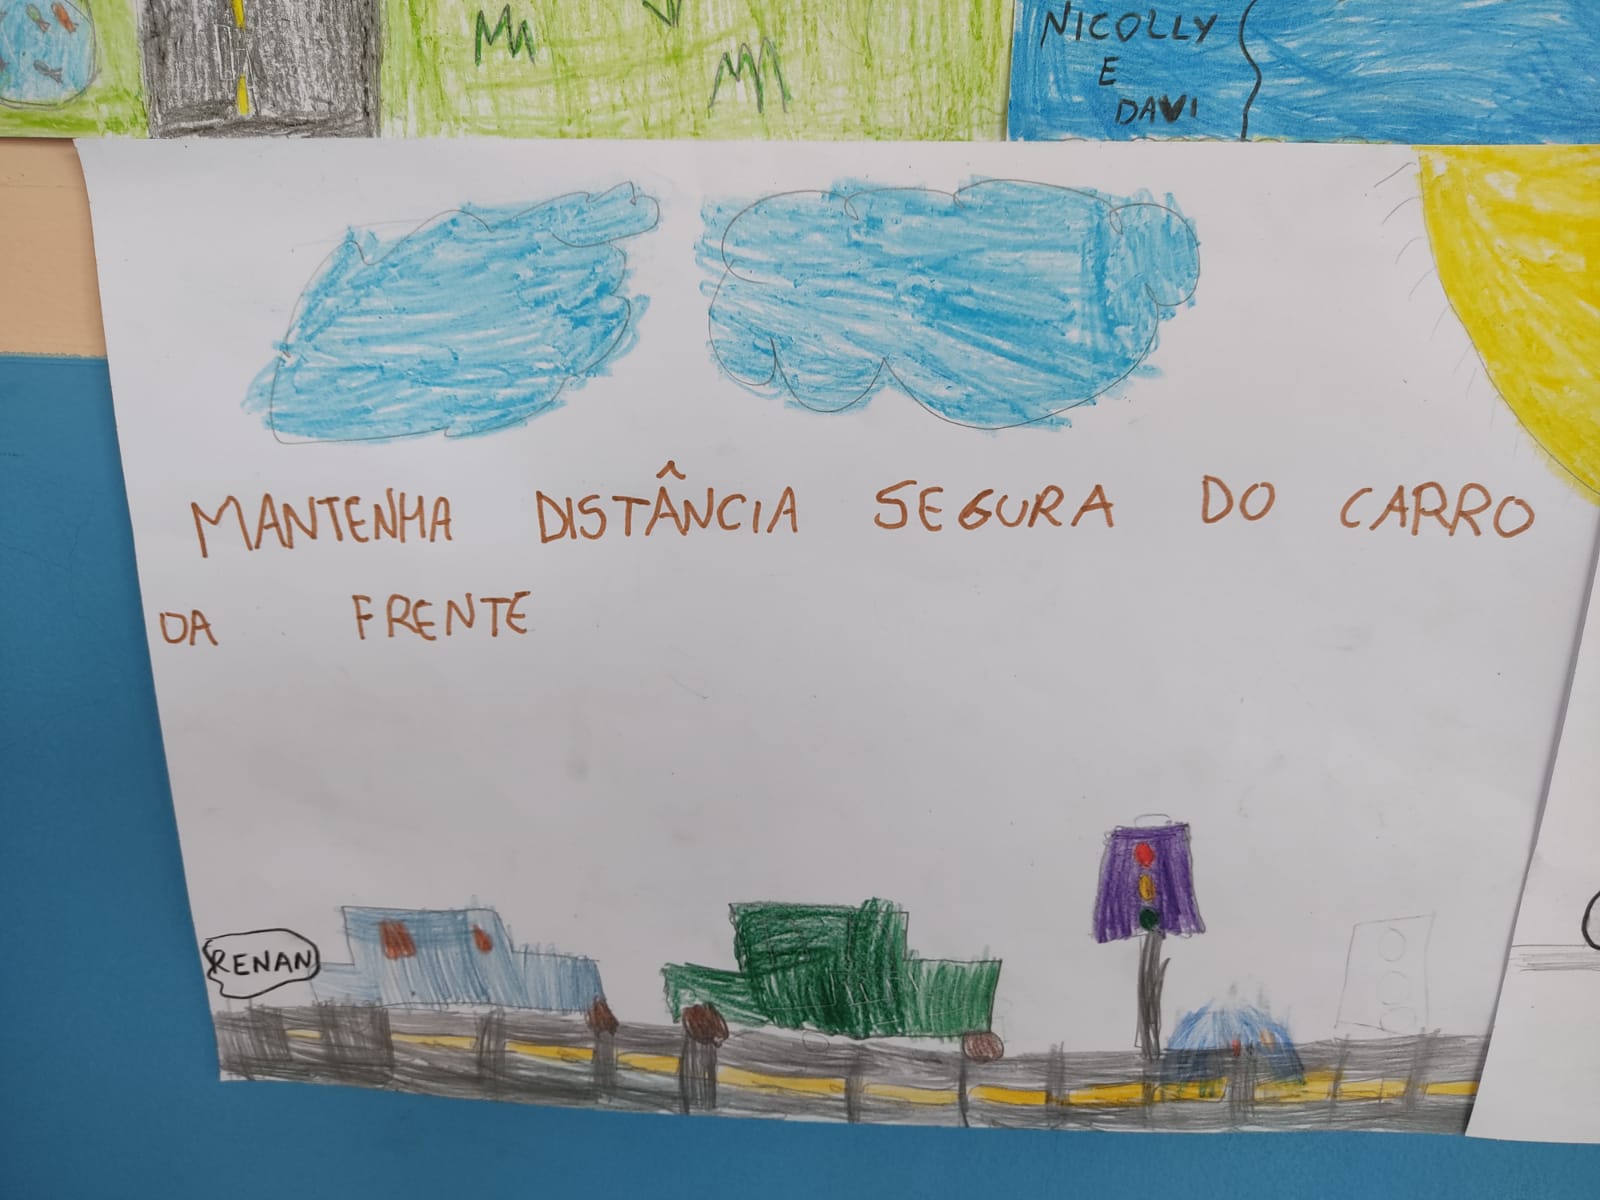 NICOLLY
E
DAVI
MANTENHA DISTÂNCIA SEGURA DO CARRO
DA FRENTE
RENAN